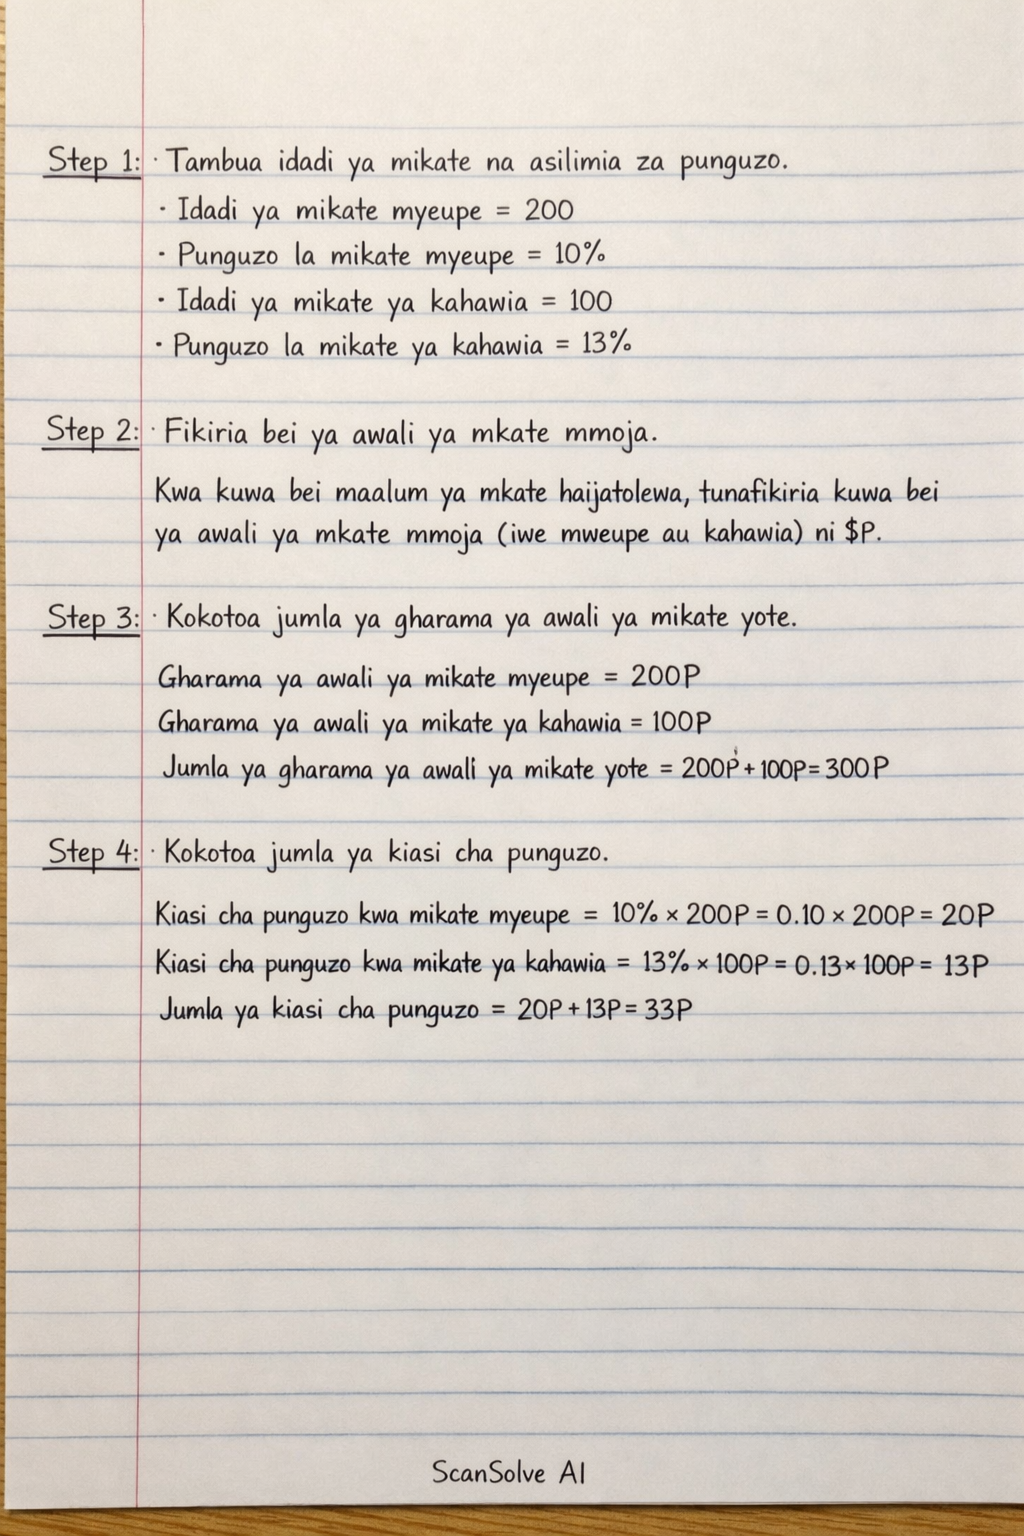 Step 1: · Tambua idadi ya mikate na asilimia za punguzo.
· Idadi ya mikate myeupe = 200
· Punguzo la mikate myeupe = 10%
· Idadi ya mikate ya kahawia = 100
· Punguzo la mikate ya kahawia = 13%
Step 2: · Fikiria bei ya awali ya mkate mmoja.
Kwa kuwa bei maalum ya mkate haijatolewa, tunafikiria kuwa bei
ya awali ya mkate mmoja (iwe mweupe au kahawia) ni $P.
Step 3: · Kokotoa jumla ya gharama ya awali ya mikate yote.
Gharama ya awali ya mikate myeupe = 200P
Gharama ya awali ya mikate ya kahawia = 100P
Jumla ya gharama ya awali ya mikate yote = 200P + 100P = 300P
Step 4: · Kokotoa jumla ya kiasi cha punguzo.
Kiasi cha punguzo kwa mikate myeupe = 10% × 200P = 0.10 × 200P = 20P
Kiasi cha punguzo kwa mikate ya kahawia = 13% × 100P = 0.13 × 100P = 13P
Jumla ya kiasi cha punguzo = 20P + 13P = 33P
ScanSolve AI